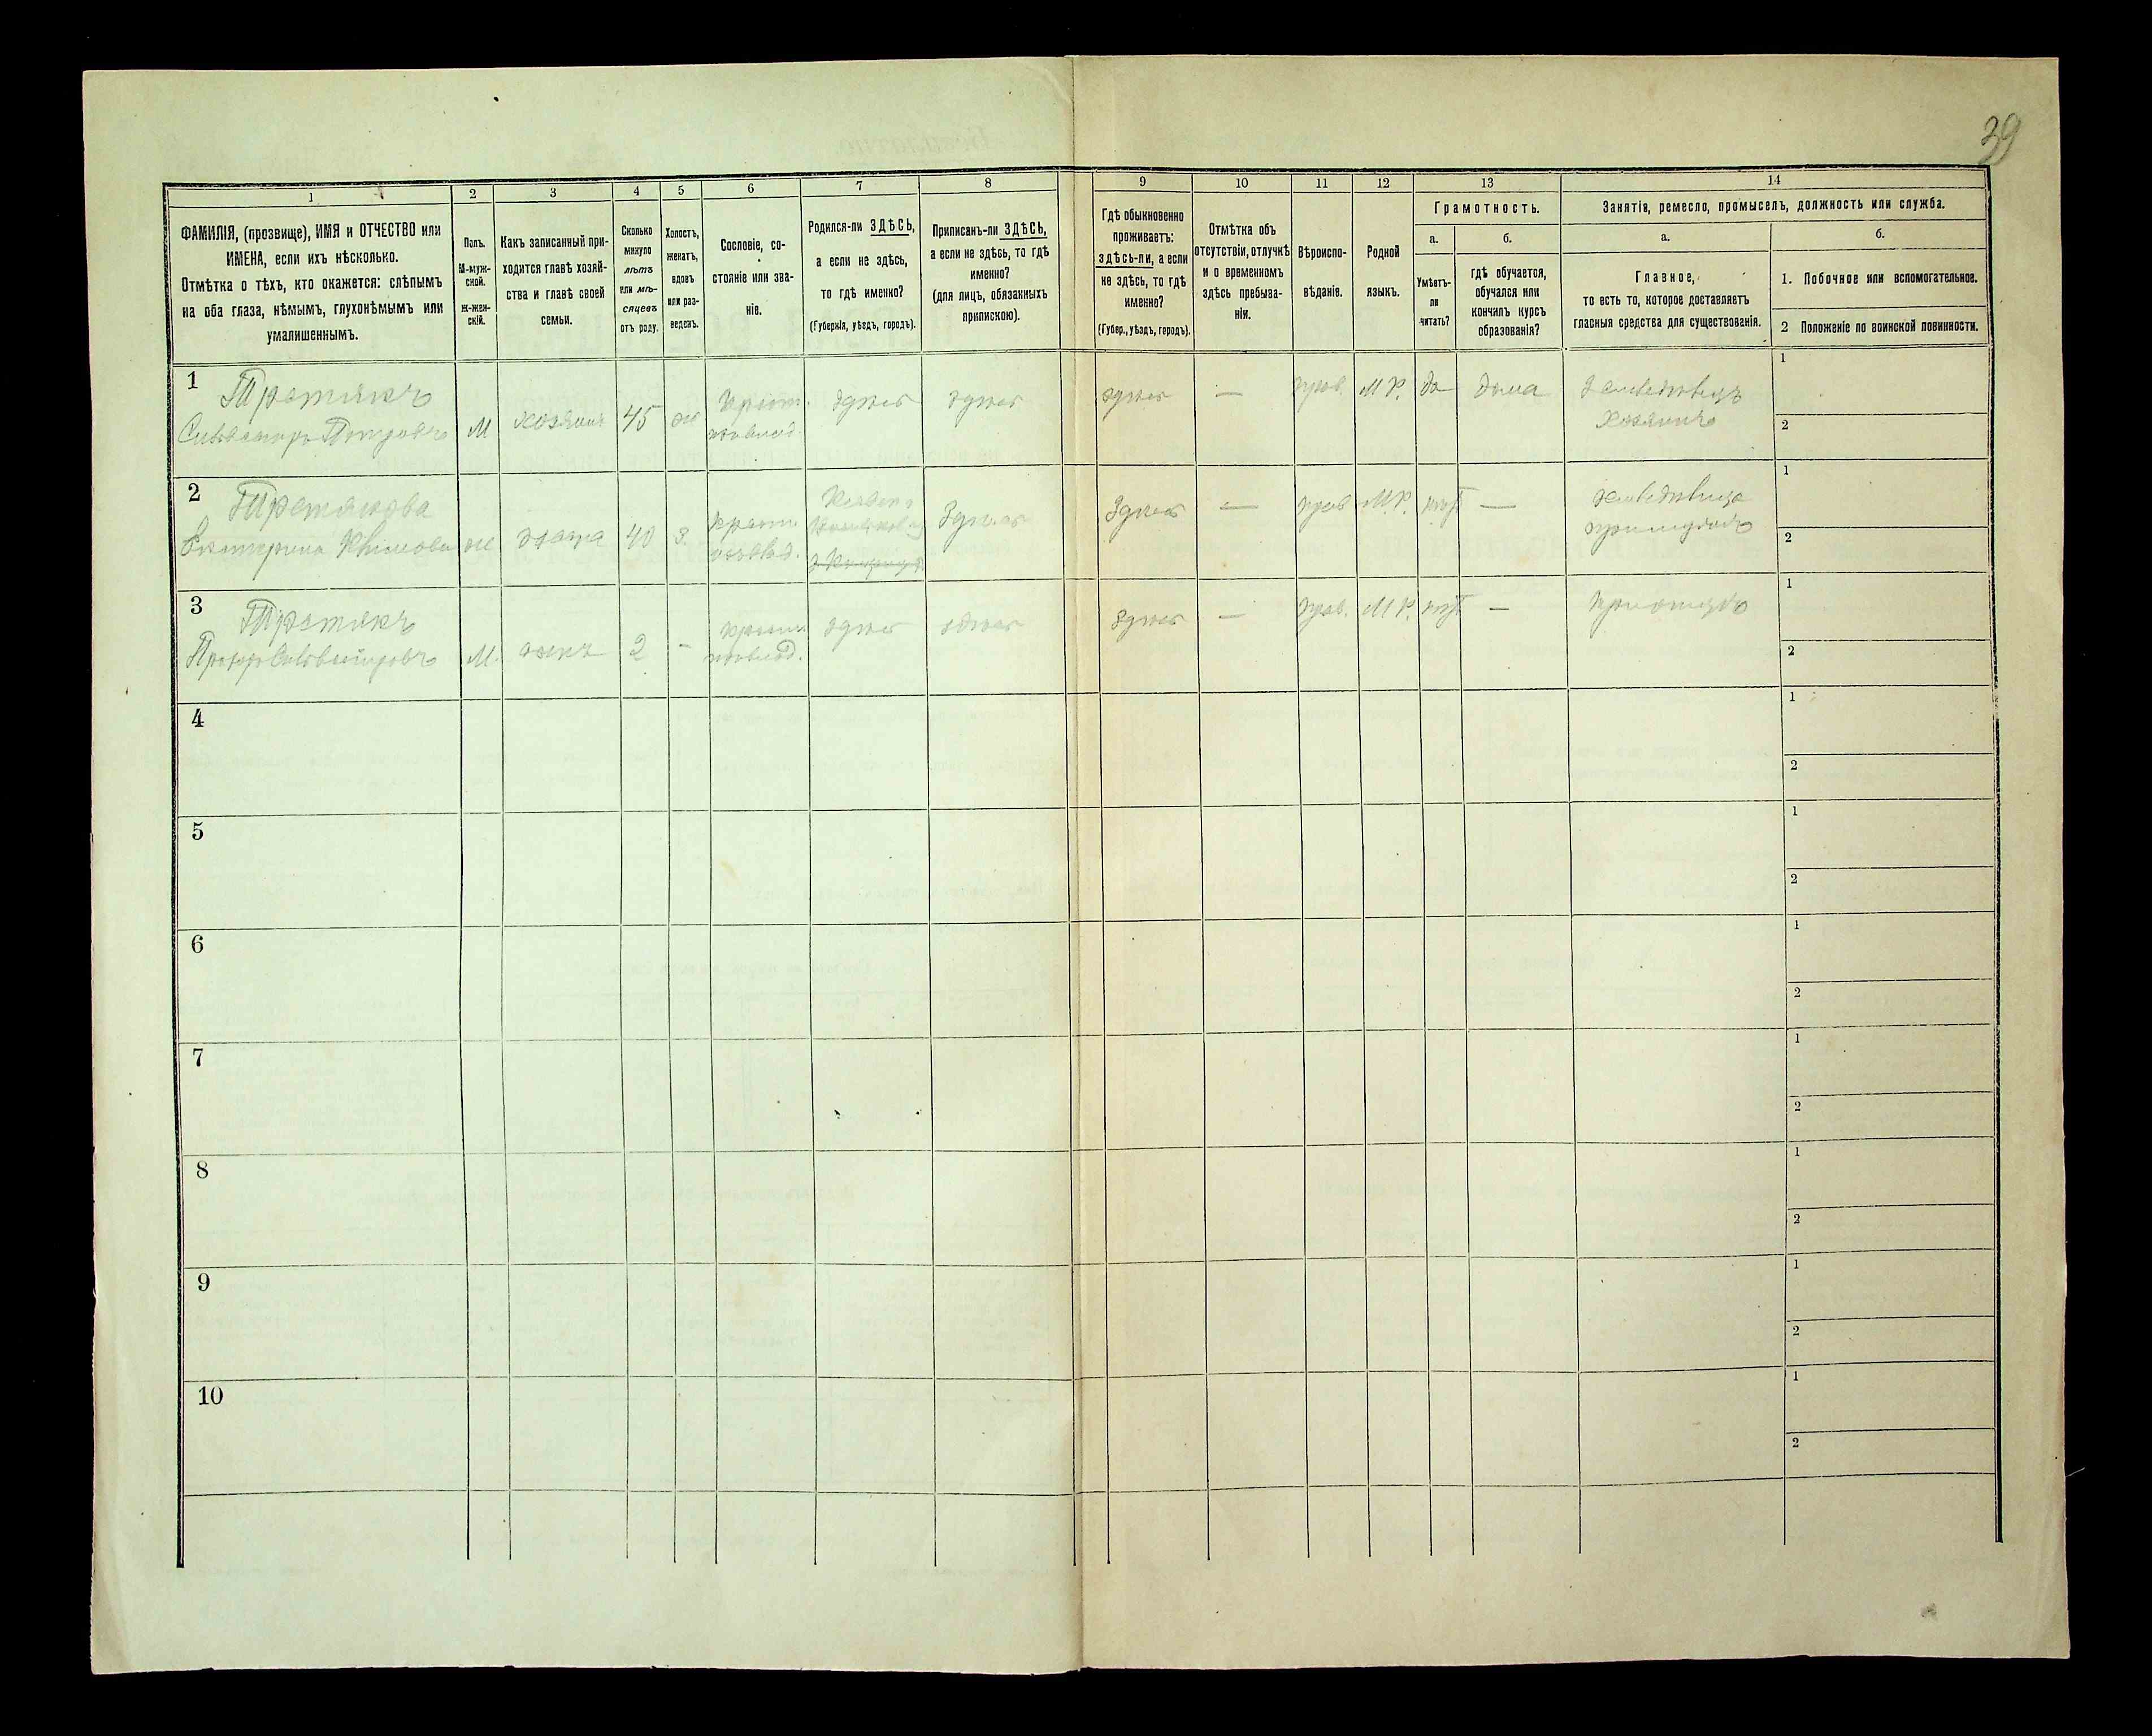 39
1
2
3
4
5
6
7
8
9
10
11
12
13
14
ФАМИЛІЯ, (прозвище), ИМЯ и ОТЧЕСТВО или
ИМЕНА, если ихъ нѣсколько.
Отмѣтка о тѣхъ, кто окажется: слѣпымъ
на оба глаза, нѣмымъ, глухонѣмымъ или
умалишеннымъ.
Полъ.
М-муж-
ской.
Ж-жен-
скій.
Какъ записанный при-
ходится главѣ хозяй-
ства и главѣ своей
семьи.
Сколько
минуло
лѣтъ
или мѣ-
сяцевъ
отъ роду.
Холостъ,
женатъ,
вдовъ
или раз-
веденъ.
Сословіе, со-
стояніе или зва-
ніе.
Родился-ли ЗДѢСЬ,
а если не здѣсь,
то гдѣ именно?
(Губернія, уѣздъ, городъ).
Приписанъ-ли ЗДѢСЬ,
а если не здѣсь, то гдѣ
именно?
(для лицъ, обязанныхъ
припискою).
Гдѣ обыкновенно
проживаетъ:
здѣсь-ли, а если
не здѣсь, то гдѣ
именно?
(Губер., уѣздъ, городъ).
Отмѣтка объ
отсутствіи, отлучкѣ
и о временномъ
здѣсь пребыва-
ніи.
Вѣроиспо-
вѣданіе.
Родной
языкъ.
Грамотность.
а.
Умѣетъ-
ли
читать?
б.
гдѣ обучается,
обучался или
кончилъ курсъ
образованія?
Занятія, ремесло, промыселъ, должность или служба.
а.
Главное,
то есть то, которое доставляетъ
главныя средства для существованія.
б.
1. Побочное или вспомогательное.
2 Положеніе по воинской повинности.
1
Третякъ
Сильвестръ Петровъ
М
хозяинъ
45
ж
Крест.
здѣсь
здѣсь
здѣсь
—
прав.
М.Р.
да
дома
Хозяинъ
1
2
2
Третякова
Екатерина
ж
жена
40
з.
Крест.
Здѣсь
Здѣсь
—
прав
М.Р.
нѣтъ
—
1
2
3
Третякъ
Прохоръ Сильвестровъ
М.
сынъ
2
-
крест.
здѣсь
здѣсь
здѣсь
—
прав.
М.Р.
нѣтъ
—
при отцѣ
1
2
4
1
2
5
1
2
6
1
2
7
1
2
8
1
2
9
1
2
10
1
2